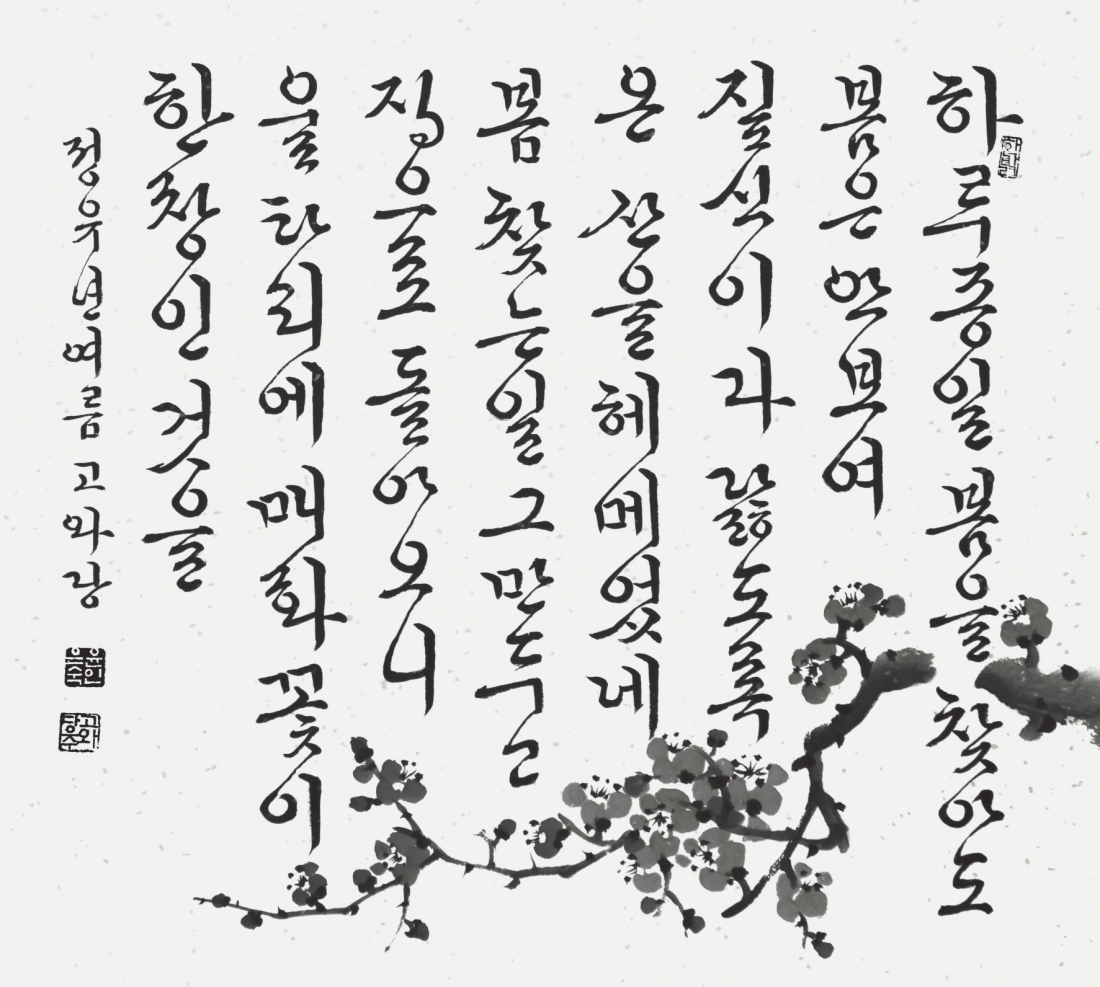 하루종일 봄을 찾아도
봄은 안보여
짚신이 다 닳도록
온 산을 헤메었네
봄 찾는일 그만두고
집으로 돌아오니
울타리에 매화꽃이
한창인 것을
정유년여름 고와당